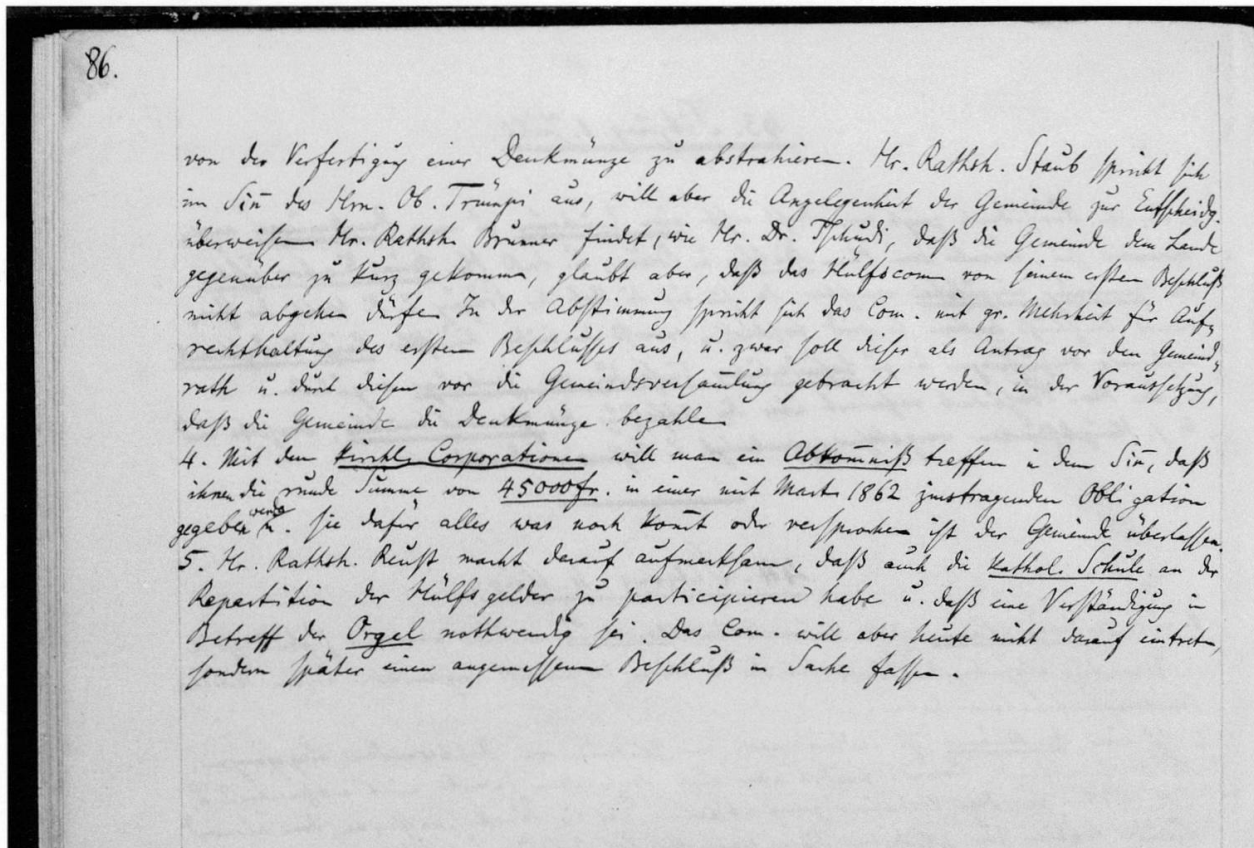 86.
von der Verfertigung einer Denkmünze zu abstrahieren. Hr. Rathsh. Staub spricht sich
im Sin̄ des Hrn. Ob. Trümpi aus, will aber die Angelegenheit der Gemeinde zur Entscheidg.
überweisen Hr. Rathsh. Brunner findet, wie Hr. Dr. Tschudi, daß die Gemeinde dem Lande
gegenüber zu kurz gekommen, glaubt aber, daß das Hülfscom von seinem ersten Beschluß
nicht abgehen dürfe. In der Abstimmung spricht sich das Com. mit gr. Mehrheit für Auf=
rechthaltung des ersten Beschlusses aus, u. zwar soll dieser als Antrag vor den Gemeind=
rath u. durch diesen vor die Gemeindsversam̄lung gebracht werden, in der Voraussetzung,
daß die Gemeinde die Denkmünze bezahle
4. Mit den kirchl. Corporationen will man ein Abkom̄niß treffen in dem Sin̄, daß
ihnen die runde Summe von 45000 fr. in einer mit Mart. 1862 zinstragenden Obligation
gegeben werde u. sie dafür alles was noch kom̄t oder versprochen ist der Gemeinde überlassen.
5. Hr. Rathsh. Reust macht darauf aufmerksam, daß auch die kathol. Schule an der
Repartition der Hülfsgelder zu participieren habe u. daß eine Verständigung in
Betreff der Orgel nothwendig sei. Das Com. will aber heute nicht darauf eintreten,
sondern später einen angemessenen Beschluß in Sache fassen.